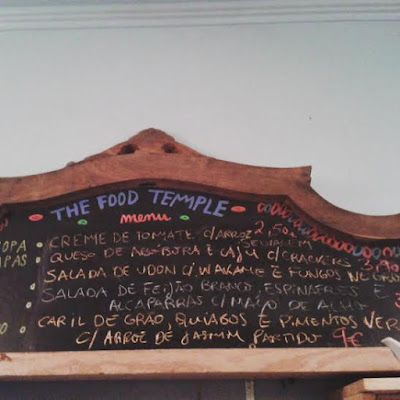 THE FOOD TEMPLE
menu
OPA • CREME DE TOMATE C/ ARROZ 2,50
APAS SELVAGEM
QUESO DE E CAJU C/ CRACKERS
SALADA DE UDON C/ WAKAME E FUNGOS
SALADA DE FEIJÃO BRANCO, ESPINAFRES E
ALCAPARRAS C/ DE
CARIL DE GRÃO, QUIABOS E PIMENTOS VER
C/ ARROZ DE JASMIM PARTIDO 9€